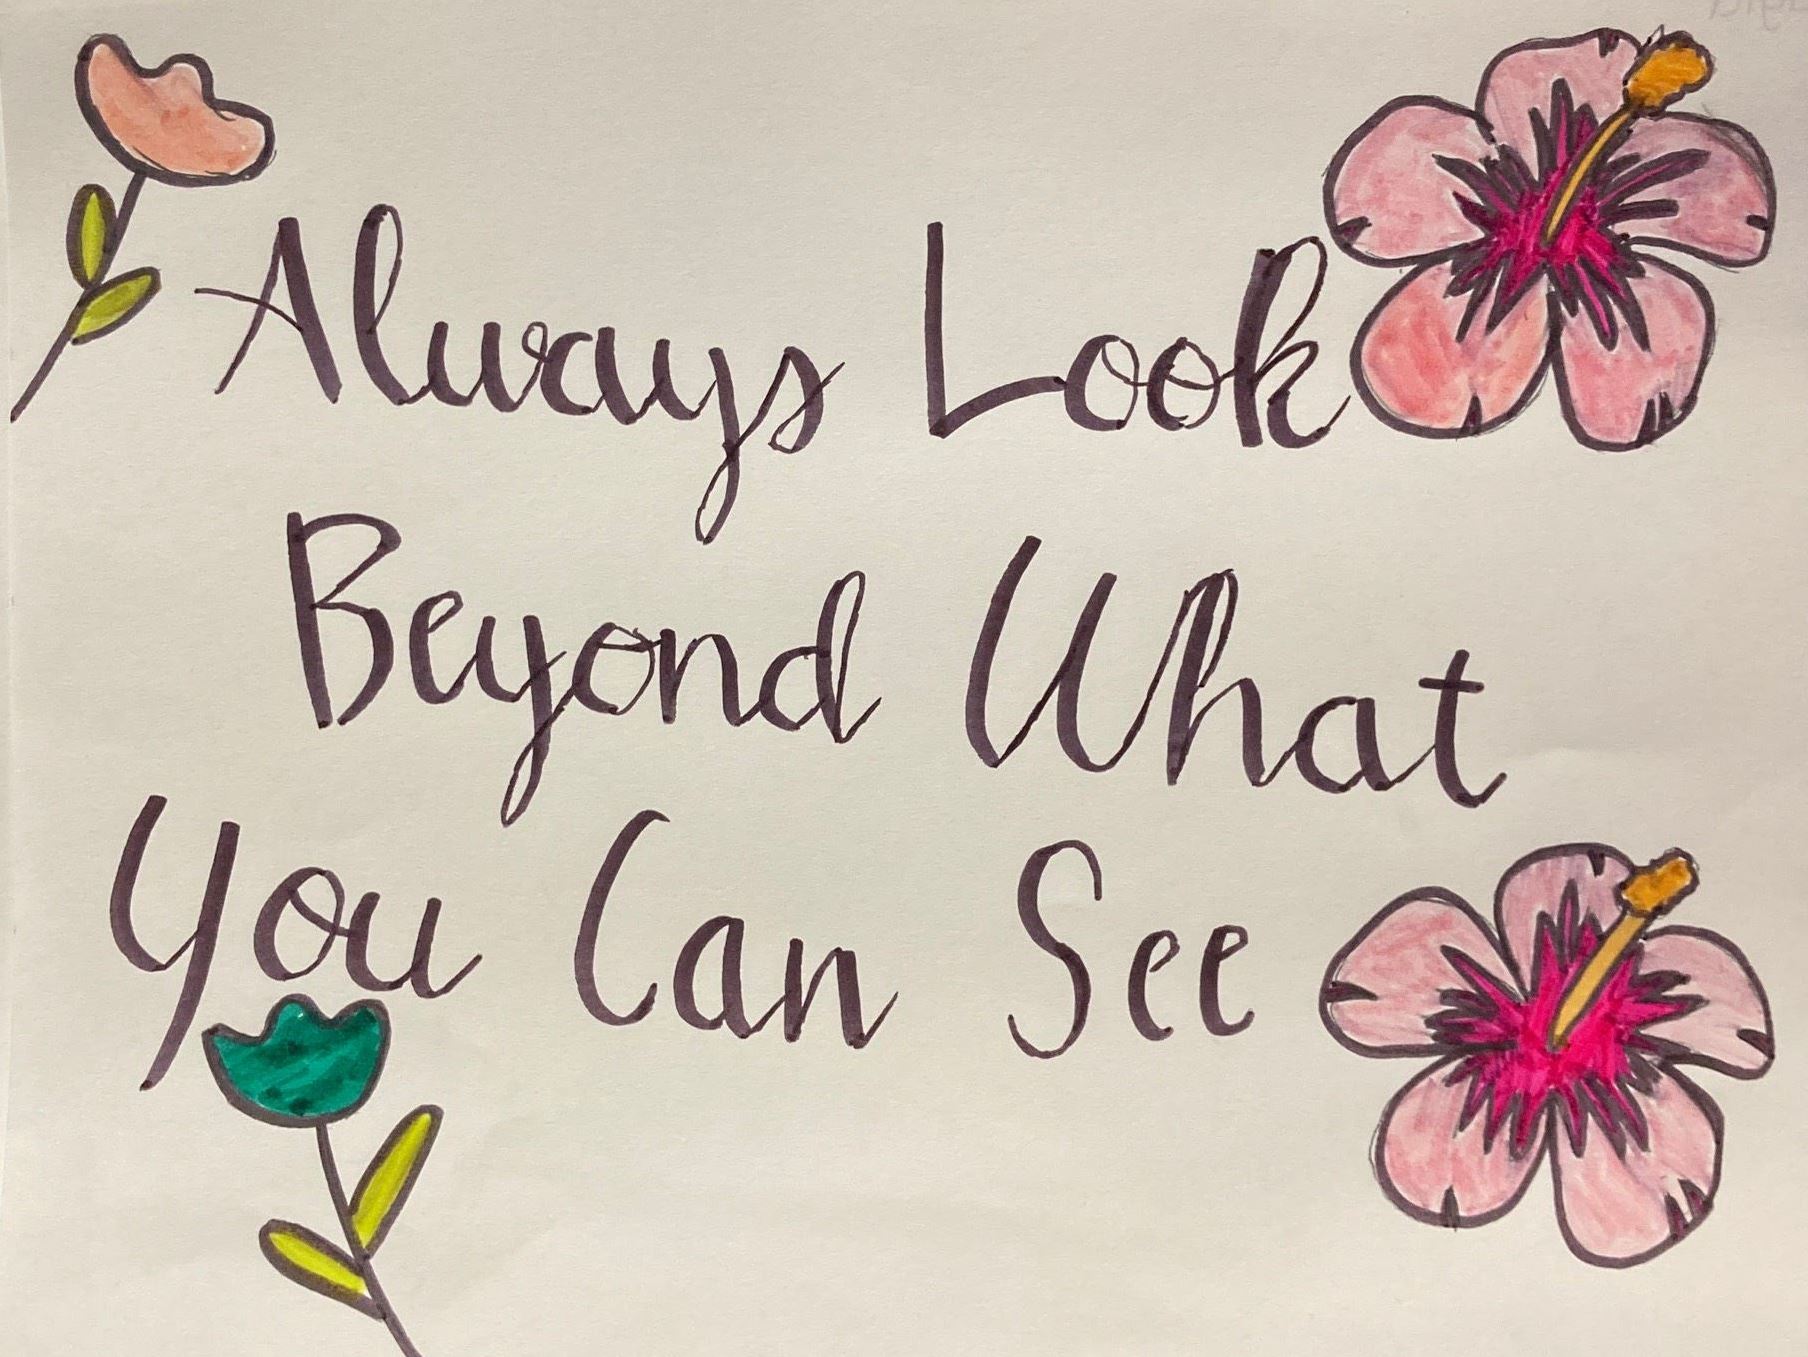 Always Look
Beyond What
You Can See